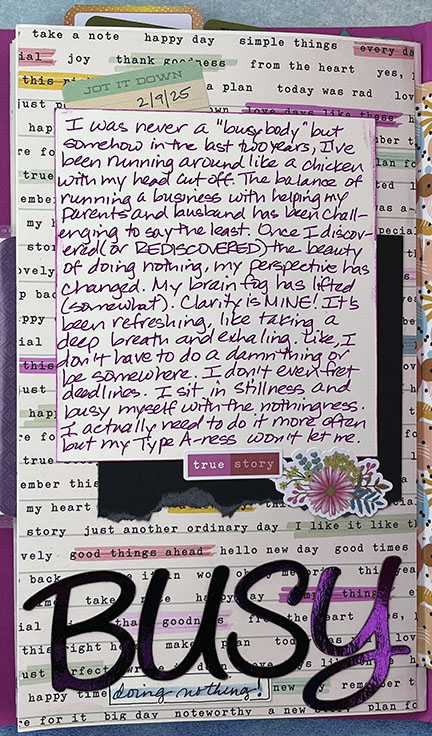 take a note happy day simple things every da
ial joy thank goodness from the heart yes,
this righ a plan today was rad lov
JOT IT DOWN
2/9/25
just p down love days like these
I was never a "busybody" but
somehow in the last two years, I've
been running around like a chicken
with my head cut off. The balance of
running a business with helping my
parents and husband has been chall-
enging to say the least. Once I discov-
ered (or REDISCOVERED) the beauty
of doing nothing, my perspective has
changed. My brain fog has lifted
(somewhat). Clarity is MINE! It's
been refreshing, like taking a
deep breath and exhaling. Like, I
don't have to do a damn thing or
be somewhere. I don't even fret
deadlines. I sit in stillness and
busy myself with the nothingness.
I actually need to do it more often
but my Type A-ness won't let me.
true story
story just another ordinary day I like it like th
vely good things ahead hello new day good times
BUSY
just perfect
happy time doing nothing! new remember t
re for it big day noteworthy a new story plan fo